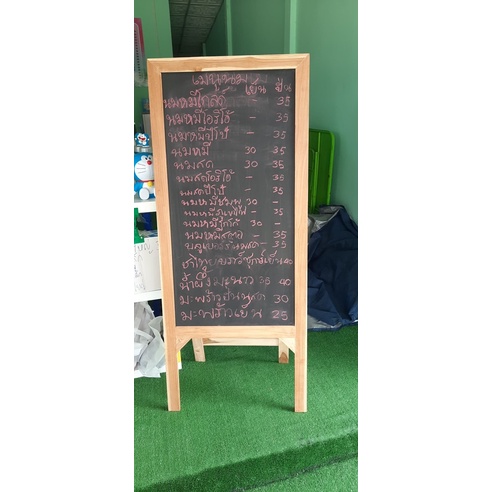 เมนูนม
เย็น ปั่น
นมหมีโกลด์ - 35
นมหมีโอริโอ้ - 35
นมหมีปีโป้ - 35
นมหมี 30 - 35
นมสด 30 - 35
นมสดโอริโอ้ - 35
นมสดปีโป้ - 35
นมหมีชมพู 30 -
นมหมี - 35
นมหมีโกโก้ 30 -
นมหมี - 35
บลูเบอร์รี่นมสด - 35
ชาไทย เย็น 40
น้ำผึ้งมะนาว 35 40
มะพร้าวปั่นนมสด 30
มะพร้าวเย็น 25